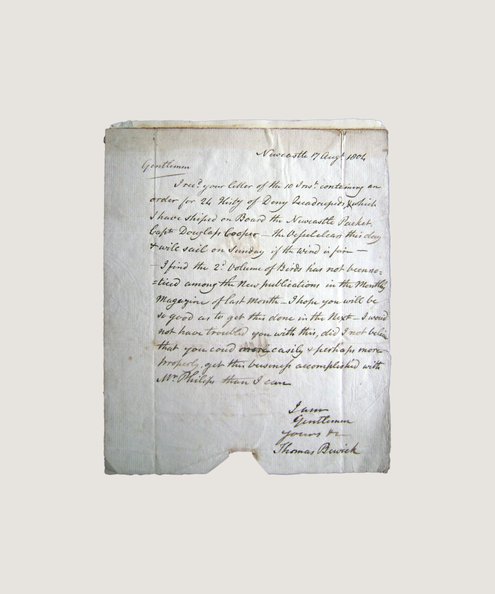 Newcastle 17 Augt. 1804
Gentlemen
I recd. your letter of the 10 Inst. containing an
order for 24 Histy of Demy Quadrupeds, & which
I have shiped on Board the Newcastle Packet,
Captn Douglass Cooper — the Vessel clears this day
& will sail on Sunday if the wind is fair —
— I find the 2d. Volume of Birds has not been no-
-ticed among the New publications in the Monthly
Magazine of last Month — I hope you will be
so good as to get this done in the Next — I woud
not have troubled you with this, did I not believe
that you coud more easily & perhaps more
properly, get this business accomplished with
Mr. Philips than I can
I am
Gentlemen
Yours &c
Thomas Bewick